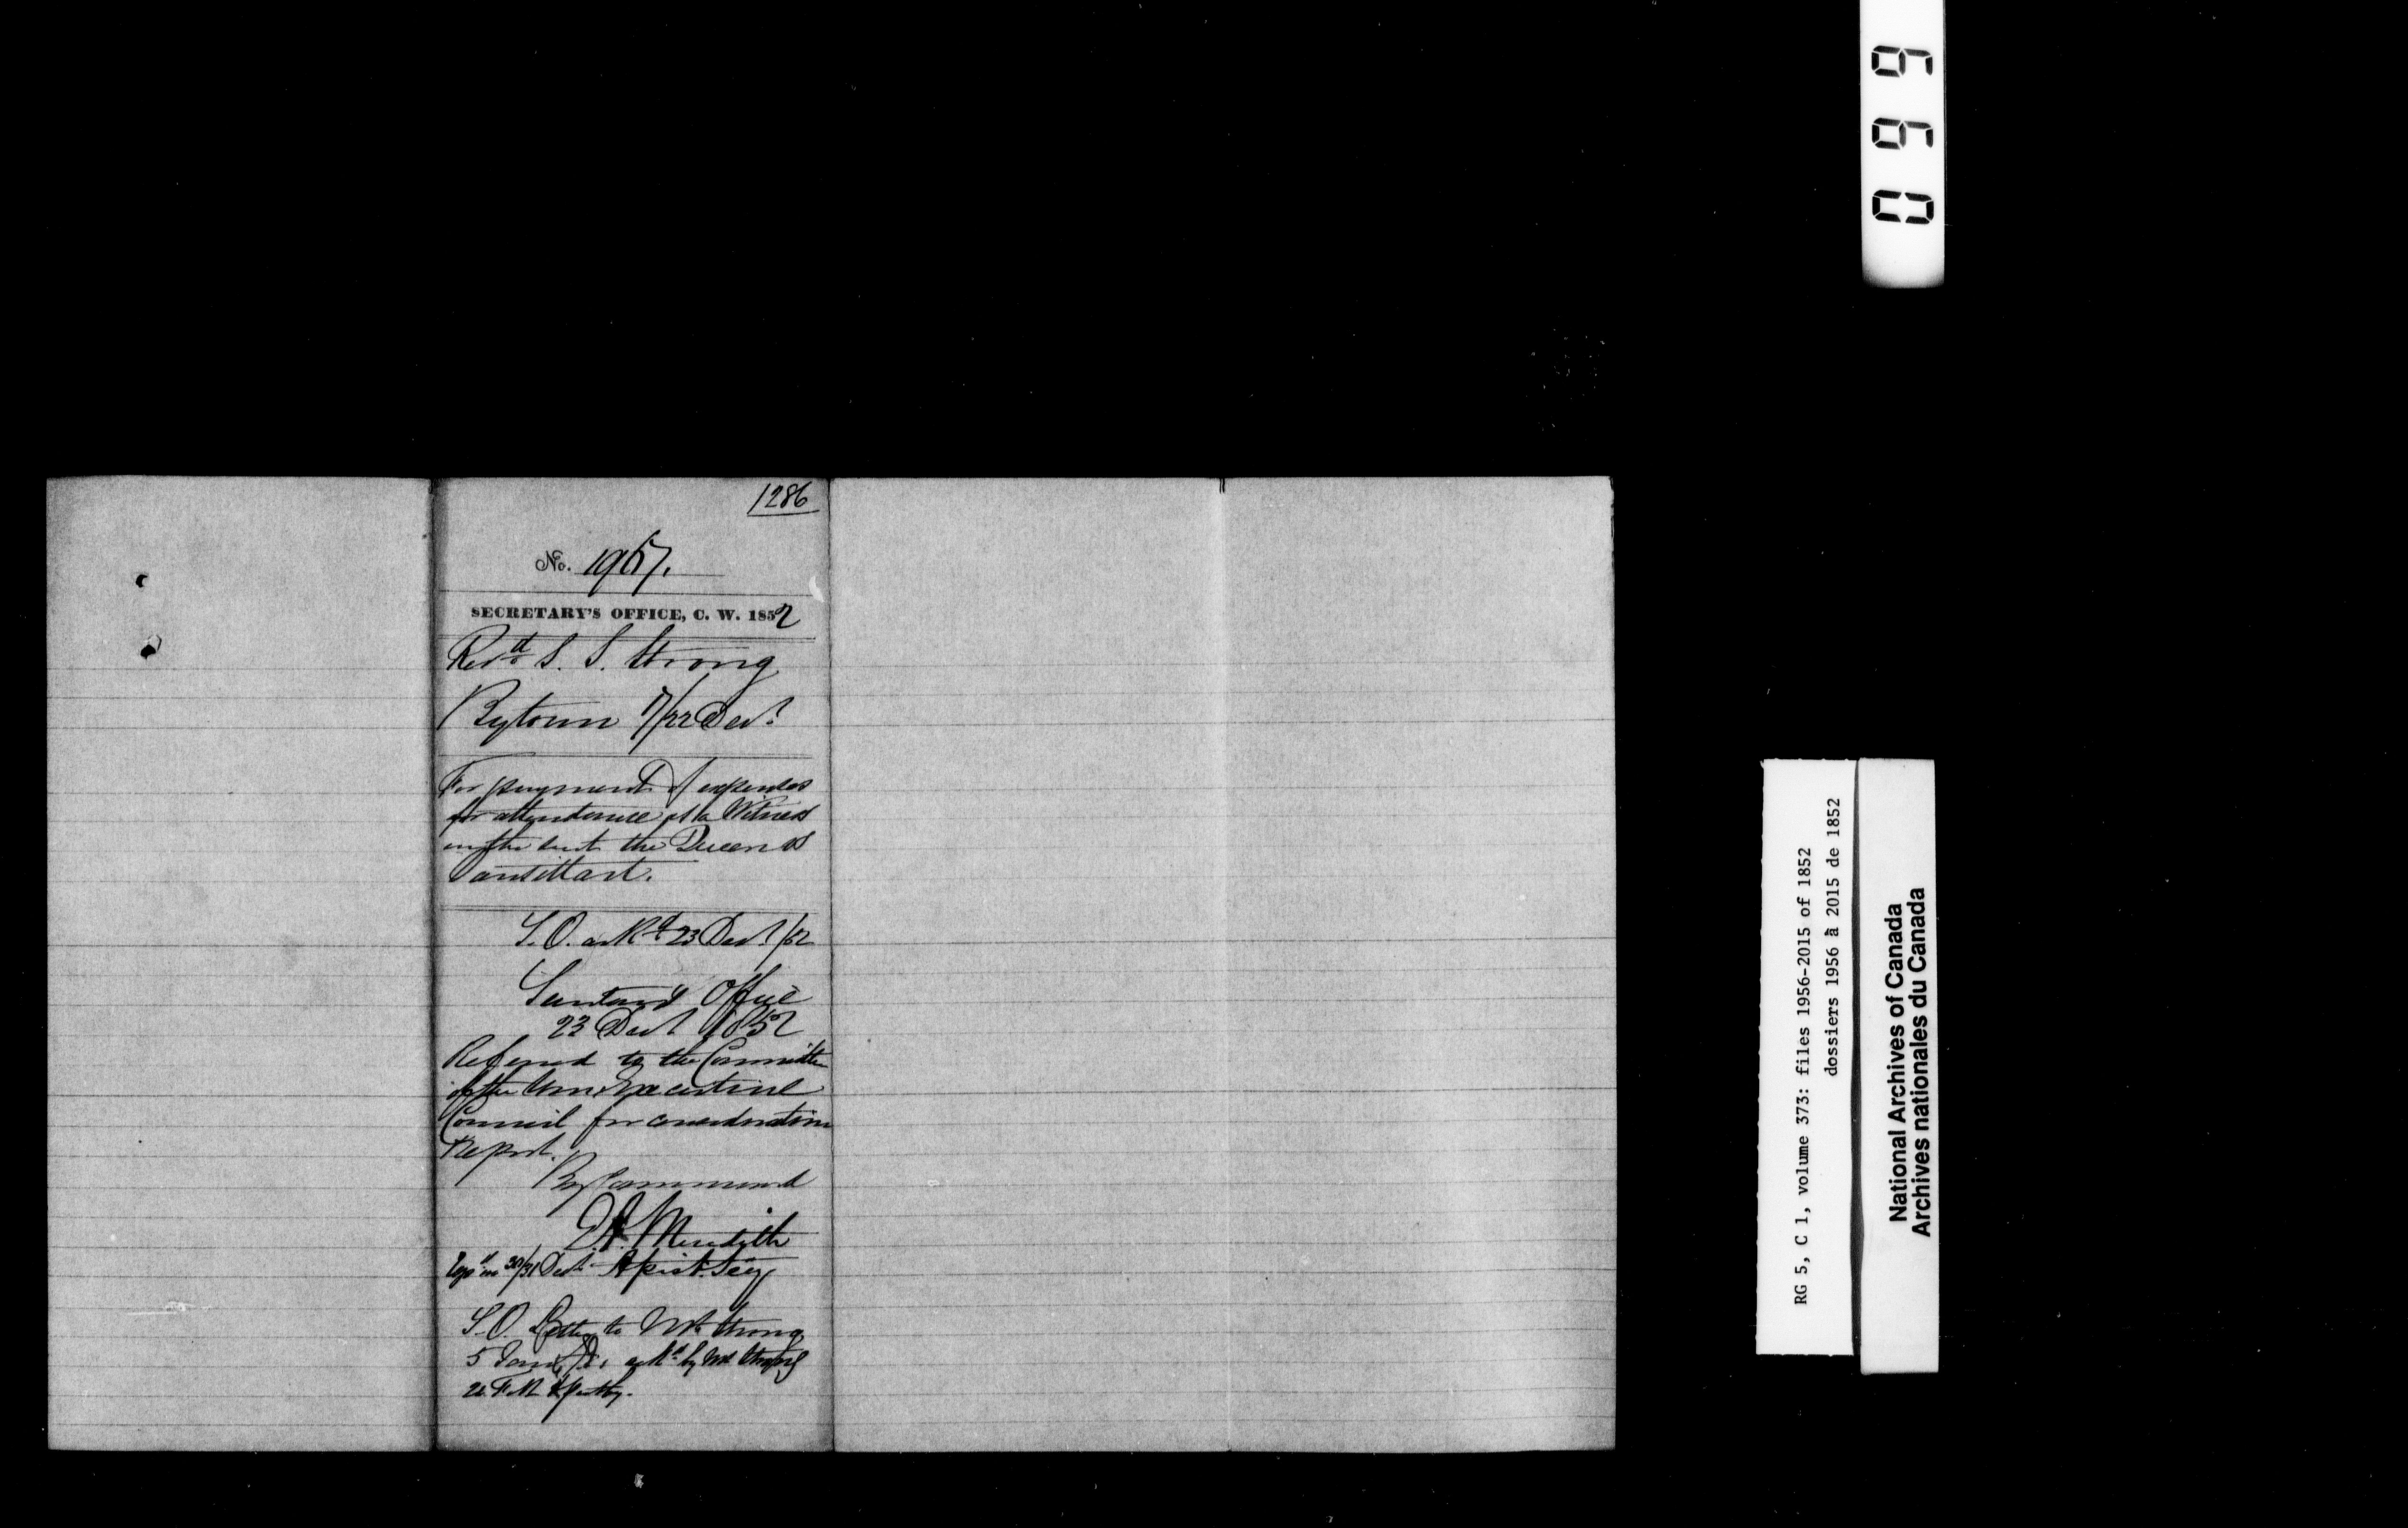 1286
No. 1967.
SECRETARY'S OFFICE, C. W. 1852
Revd S. S. Strong
Bytown 17/22 Decr
For payment of expenses
for attendance as a Witness
in the suit the Queen vs
Vansittart.
S.O. ackd 23 Decr /52
Secretary's Office
23 Decr 1852
Referred to the Committee
of the Hon. Executive
Council for consideration
& report.
By Command
E. A. Meredith
30/31 Decr Assist. Secy
S.O. Letter to Mr Strong
5 ackd by Mr Strong
0699
RG 5, C 1, volume 373: files 1956-2015 of 1852
dossiers 1956 à 2015 de 1852
National Archives of Canada
Archives nationales du Canada